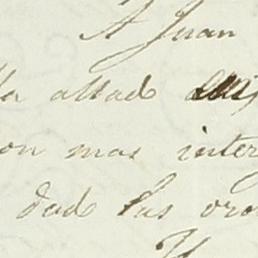 A Juan
la altad
on mas inter
dad las oro
Y